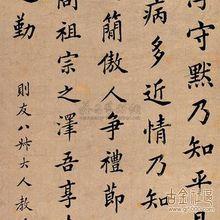 守默乃知平
病多近情乃知
簡傲人爭禮節
問祖宗之澤吾享
勤
則友八辨大人教